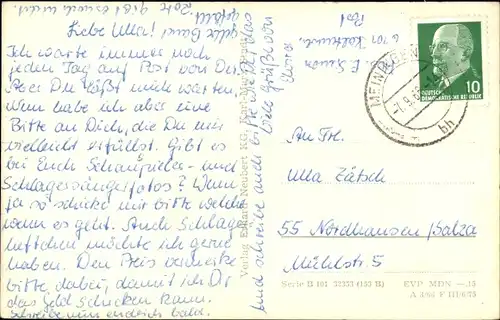 Liebe Ulla!
Ich warte immer noch
jeden Tag auf Post von Dir.
Aber Du läßt mich warten.
Nun habe ich aber eine
Bitte an Dich, die Du mir
vielleicht erfüllst. Gibt es
bei Euch Schauspieler- und
Schlagersängerfotos? Wenn
ja so schicke mir bitte welche
wenn es geht. Auch Schlager-
heftchen möchte ich gerne
haben. Den Preis vermerke
bitte, dabei, damit ich Dir
das Geld schicken kann.
Schreibe nun endlich bald.
und schreibe auch bitte
Viele Grüße von
Verlag Erhard Neubert KG, Karl-Marx-Stadt
MEININGEN
bh
10
DEUTSCHE
DEMOKRATISCHE REPUBLIK
An Frl.
Ulla Zätsch
55 Nordhausen/Salza
Mühlstr. 5
Serie B 101 33333 (153 II)
EVP MDN -.15
A 3/66 F III/6/75